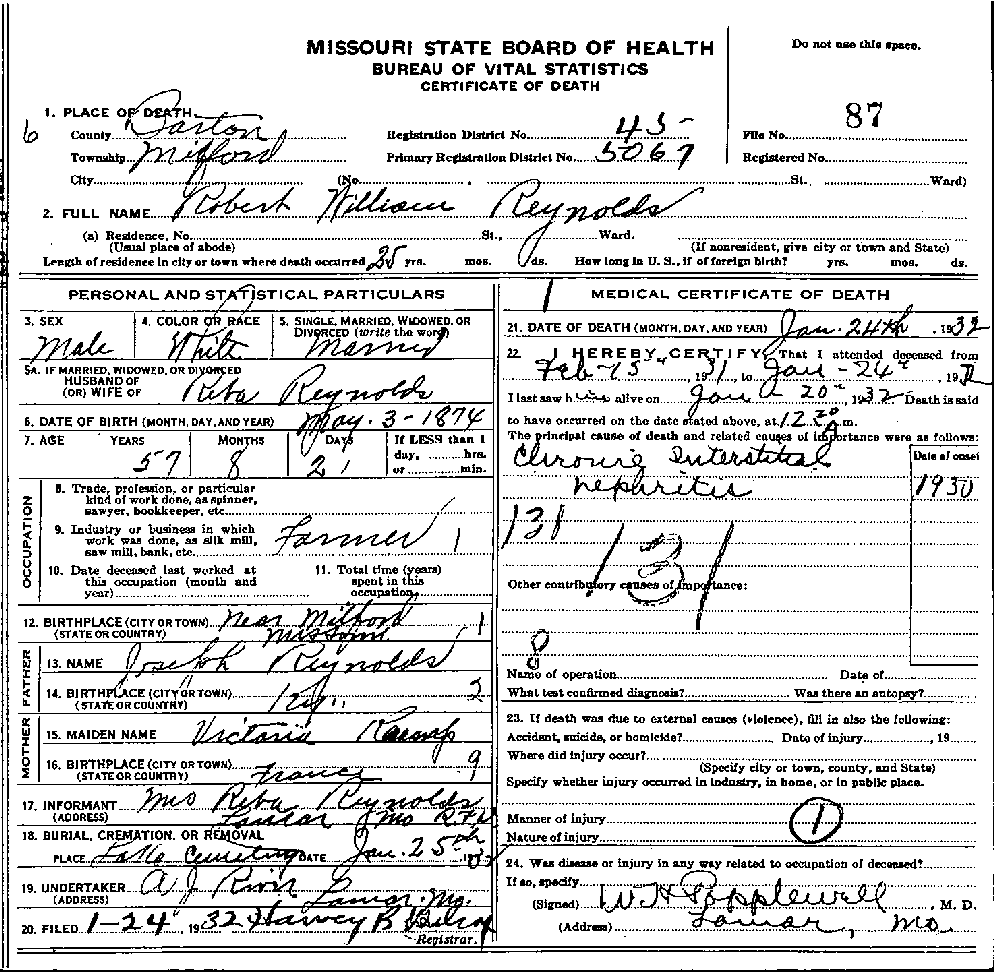 MISSOURI STATE BOARD OF HEALTH
BUREAU OF VITAL STATISTICS
CERTIFICATE OF DEATH
Do not use this space.
1. PLACE OF DEATH
6 County Barton Registration District No. 45 File No. 87
Township Milford Primary Registration District No. 5067 Registered No.
City (No. St. Ward)
2. FULL NAME Robert William Reynolds
(a) Residence, No. St., Ward.
(Usual place of abode) (If nonresident, give city or town and State)
Length of residence in city or town where death occurred 25 yrs. mos. ds. How long in U. S., if of foreign birth? yrs. mos. ds.
PERSONAL AND STATISTICAL PARTICULARS
3. SEX 4. COLOR OR RACE 5. SINGLE, MARRIED, WIDOWED, OR
DIVORCED (write the word)
Male White Married
5A. IF MARRIED, WIDOWED, OR DIVORCED
HUSBAND OF
(OR) WIFE OF Reba Reynolds
6. DATE OF BIRTH (MONTH, DAY, AND YEAR) May. 3-1874
7. AGE YEARS MONTHS DAYS If LESS than 1
day, hrs.
57 8 21 or min.
OCCUPATION
8. Trade, profession, or particular
kind of work done, as spinner,
sawyer, bookkeeper, etc.
9. Industry or business in which
work was done, as silk mill,
saw mill, bank, etc. Farmer 1
10. Date deceased last worked at
this occupation (month and
year)
11. Total time (years)
spent in this
occupation
12. BIRTHPLACE (CITY OR TOWN) near Milford
(STATE OR COUNTRY) Missouri 1
FATHER
13. NAME Joseph Reynolds
14. BIRTHPLACE (CITY OR TOWN)
(STATE OR COUNTRY) Ky. 2
MOTHER
15. MAIDEN NAME Victoria
16. BIRTHPLACE (CITY OR TOWN)
(STATE OR COUNTRY) France 9
17. INFORMANT Mrs Reba Reynolds
(ADDRESS) Lamar Mo R.F.D.
18. BURIAL, CREMATION, OR REMOVAL
PLACE Cemetery DATE Jan. 25th
19. UNDERTAKER A J
(ADDRESS) Lamar, Mo.
20. FILED 1-24 1932 Harvey B
Registrar.
MEDICAL CERTIFICATE OF DEATH
21. DATE OF DEATH (MONTH, DAY, AND YEAR) Jan. 24th, 1932
22. I HEREBY CERTIFY, That I attended deceased from
Feb-15", 1931, to Jan-24", 19
I last saw him alive on Jan 20", 1932 Death is said
to have occurred on the date stated above, at 12 20 A m.
The principal cause of death and related causes of importance were as follows:
Date of onset
Chronic Interstitial
nephritis 1930
131
131
Other contributory causes of importance:
Name of operation Date of
What test confirmed diagnosis? Was there an autopsy?
23. If death was due to external causes (violence), fill in also the following:
Accident, suicide, or homicide? Date of injury, 19
Where did injury occur?
(Specify city or town, county, and State)
Specify whether injury occurred in industry, in home, or in public place.
Manner of injury
1
Nature of injury
24. Was disease or injury in any way related to occupation of deceased?
If so, specify
(Signed) W H Popplewell, M. D.
(Address) Lamar, Mo.